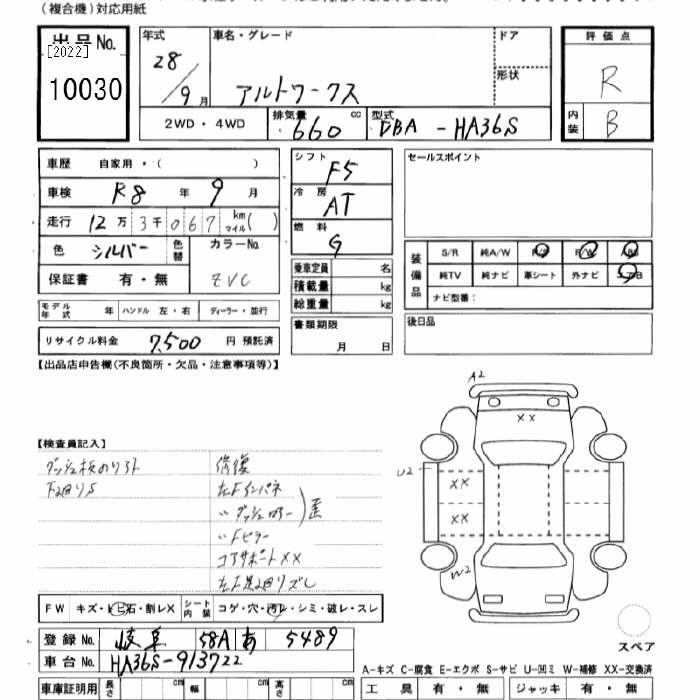 (複合機)対応用紙
出品No.
[2022]
10030
年式
28/9月
車名・グレード
アルトワークス
ドア
形状
評価点
R
内装 B
2WD・4WD
排気量 660 cc
型式 DBA - HA36S
車歴 自家用・( )
車検 R8 年 9 月
走行 12万3千067 km マイル( )
色 シルバー 色替
カラーNo. ZVC
保証書 有・無
モデル年式 年 ハンドル 左・右 ディーラー・並行
リサイクル料金 7,500 円 預託済
シフト F5
冷房 AT
燃料 G
乗車定員 名
積載量 kg
総重量 kg
書類期限
月 日
セールスポイント
装備品
S/R 純A/W P/S P/W ABS
純TV 純ナビ 革シート 外ナビ エアB
ナビ型番:
後日品
【出品店申告欄(不良箇所・欠品・注意事項等)】
【検査員記入】
下回りS
修復
左Fインパネ
〃Fピラー
コアサポートXX
A2
XX
U2
XX
XX
W2
FW キズ・ﾋﾞ石・割レX
シート内装 コゲ・穴・汚レ・シミ・破レ・スレ
登録No. 岐阜 58A あ 5489
車台No. HA36S-913722
スペア
A-キズ C-腐食 E-エクボ S-サビ U-凹ミ W-補修 XX-交換済
車庫証明用 長さ cm 幅 cm 高さ cm
工具 有・無 ジャッキ 有・無